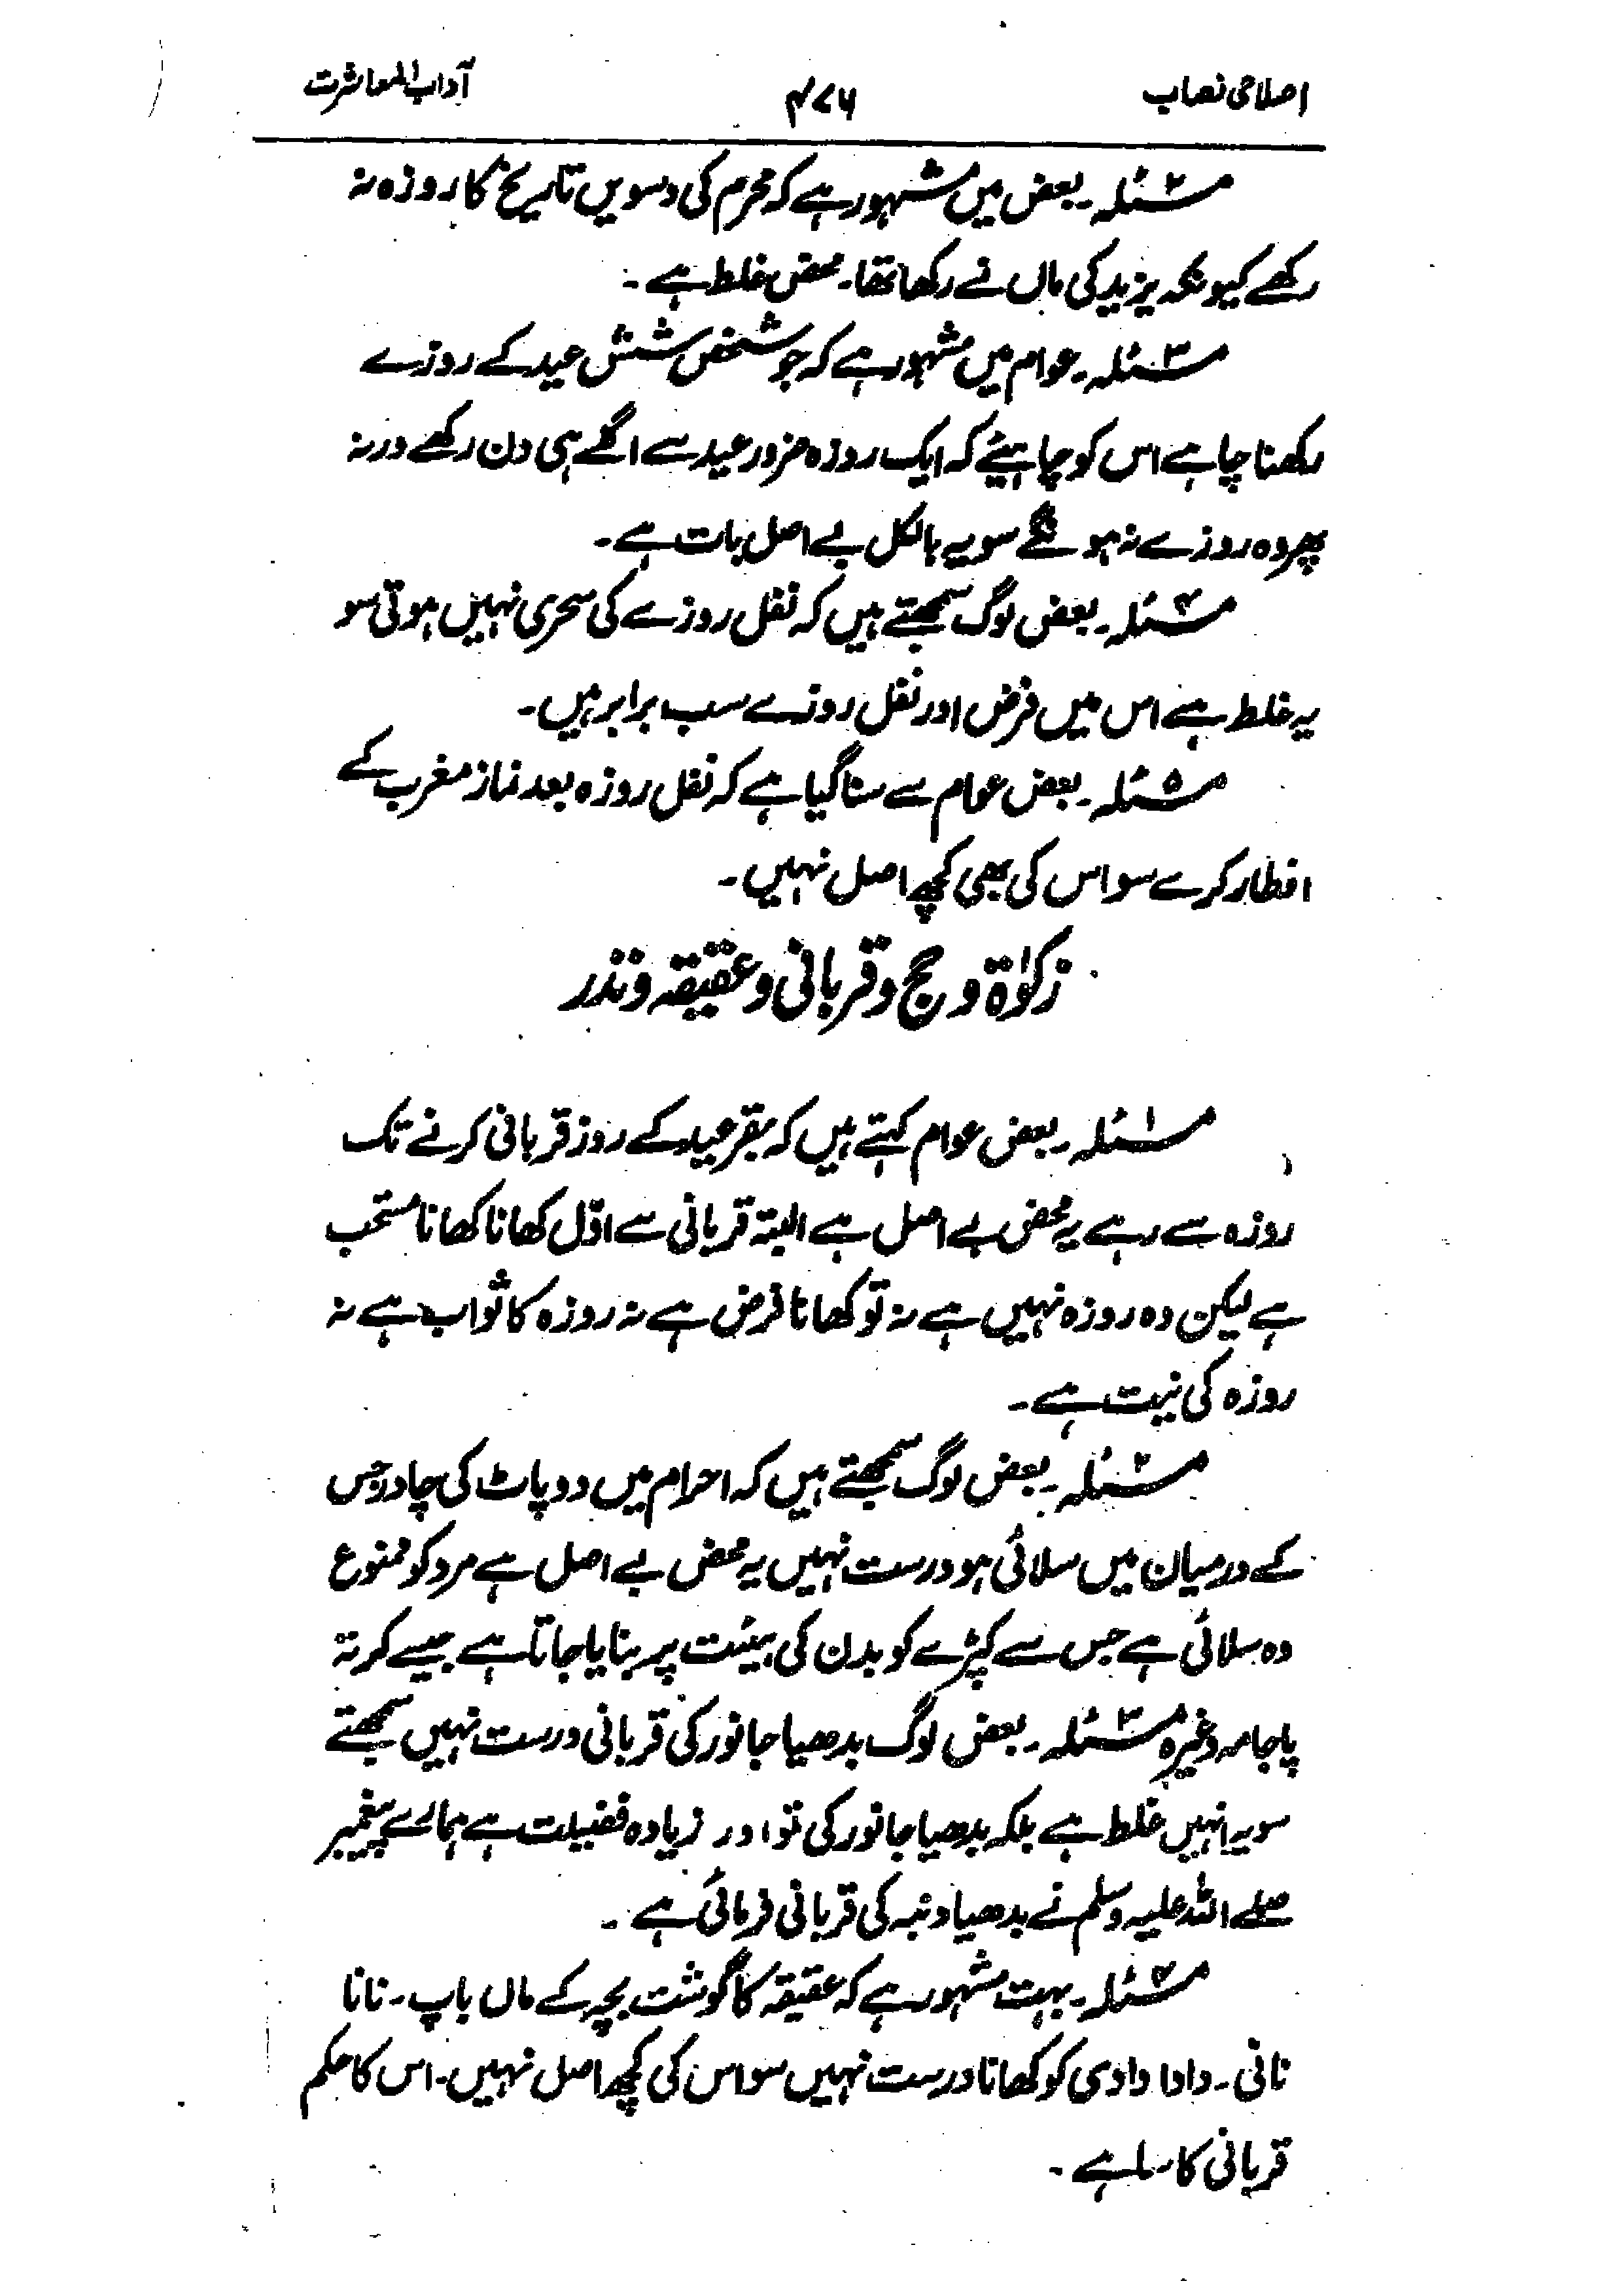 اصلاحی نصاب ۴۷۶ آداب المعاشرت
مسئلہ۲۔ بعض میں مشہور ہے کہ محرم کی دسویں تاریخ کا روزہ نہ
رکھے کیونکہ یزید کی ماں نے رکھا تھا۔ محض غلط ہے ۔
مسئلہ۳۔ عوام میں مشہور ہے کہ جو شخص شش عید کے روزے
رکھنا چاہے اس کو چاہیئے کہ ایک روزہ ضرور عید سے اگلے ہی دن رکھے ورنہ
پھر وہ روزے نہ ہونگے سو یہ بالکل بے اصل بات ہے ۔
مسئلہ۴۔ بعض لوگ سمجھتے ہیں کہ نفل روزے کی سحری نہیں ہوتی سو
یہ غلط ہے اس میں فرض اور نفل روزے سب برابر ہیں۔
مسئلہ۵۔ بعض عوام سے سنا گیا ہے کہ نفل روزہ بعد نماز مغرب کے
افطار کرے سو اس کی بھی کچھ اصل نہیں ۔
زکوٰۃ و حج و قربانی و عقیقہ و نذر
مسئلہ۱۔ بعض عوام کہتے ہیں کہ بقر عید کے روز قربانی کرنے تک
روزہ سے رہے یہ محض بے اصل ہے البتہ قربانی سے اوّل کھانا نا کھانا مستحب
ہے لیکن وہ روزہ نہیں ہے نہ تو کھانا فرض ہے نہ روزہ کا ثواب ہے نہ
روزہ کی نیت ہے ۔
مسئلہ۲۔ بعض لوگ سمجھتے ہیں کہ احرام میں دو پاٹ کی چادر جس
کے درمیان میں سلائی ہو درست نہیں یہ محض بے اصل ہے مرد کو ممنوع
وہ سلائی ہے جس سے کپڑے کو بدن کی ہیئت پر بنایا جاتا ہے جیسے کرتہ
پاجامہ وغیرہ مسئلہ۳۔ بعض لوگ بدھیا جانور کی قربانی درست نہیں سمجھتے
سو یہ انہیں غلط ہے بلکہ بدھیا جانور کی تو اور زیادہ فضیلت ہے ہمارے پیغمبر
صلے اللہ علیہ وسلم نے بدھیا دنبہ کی قربانی فرمائی ہے ۔
مسئلہ۴۔ بہت مشہور ہے کہ عقیقہ کا گوشت بچہ کے ماں باپ ۔ نانا
نانی ۔ دادا دادی کو کھانا درست نہیں سو اس کی کچھ اصل نہیں ۔ اس کا حکم
قربانی کا سا ہے ۔